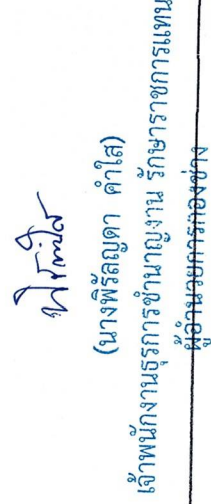 (นางพิรัลญดา คำใส)
เจ้าพนักงานธุรการชำนาญงาน รักษาราชการแทน
ผู้อำนวยการกองช่าง